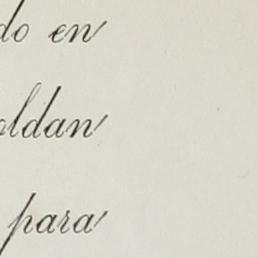 do en
oldan
para